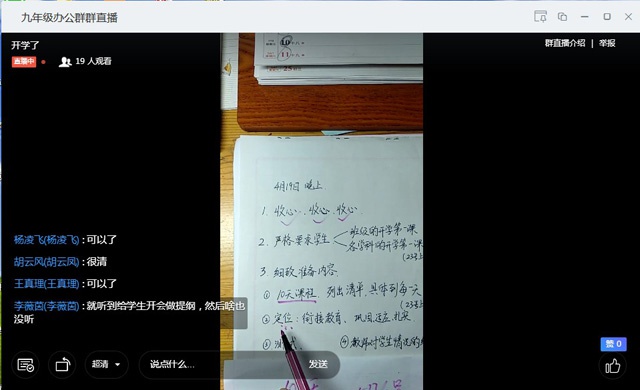 九年级办公群群直播
开学了
群直播介绍 | 举报
直播中
19 人观看
10
11
4月19日 晚上
1. 收心、收心、收心
2. 严格要求学生
班级的开学第一课
各学科的开学第一课
3. 细致准备内容
① 10天课程,列出清单,具体到每一天
② 定位:衔接教育、巩固适应、扎实
③ 测试
④ 教师对学生情况的
杨凌飞(杨凌飞) : 可以了
胡云风(胡云凤) : 很清
王真理(王真理) : 可以了
李薇茵(李薇茵) : 就听到给学生开会做提纲,然后啥也
没听
超清
说点什么...
发送
赞 0